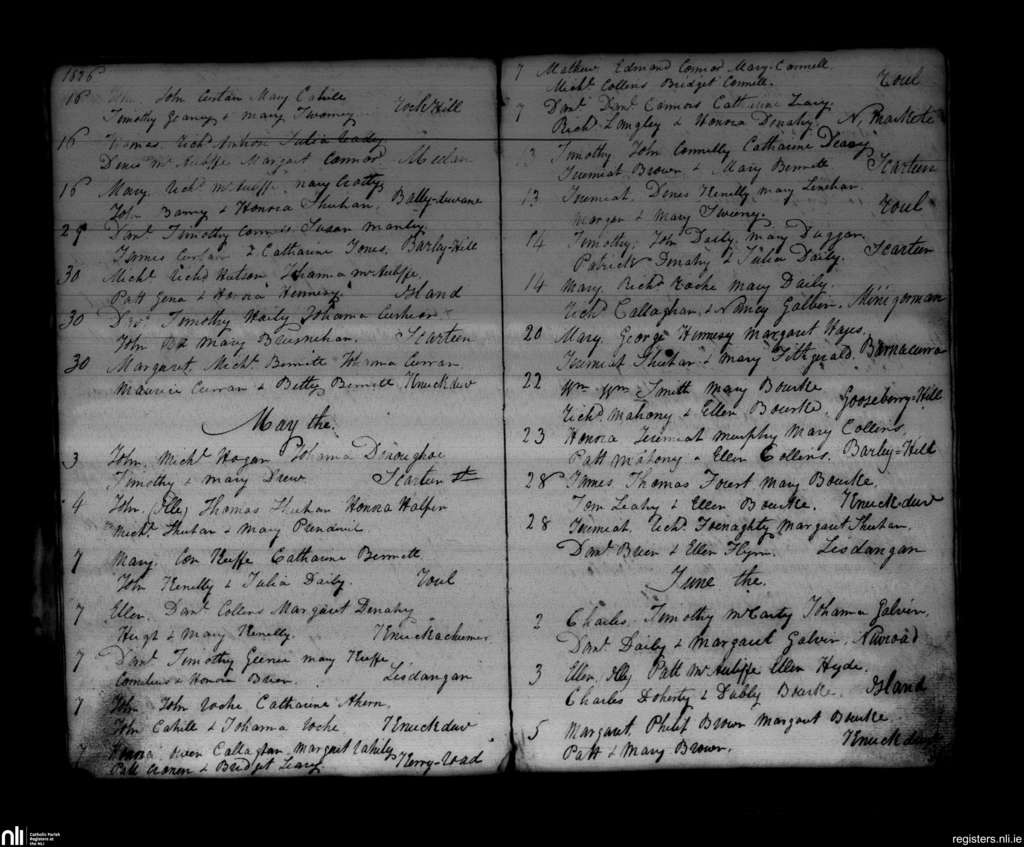 1826
16 John Curtan Mary Cahill
Timothy Geaney & Mary Twomey Rock Hill
16 Thomas Richd Julia Leady
Denis McAuliffe Margaret Connor Meelan
16 Mary Richd McAuliffe Mary Crotty
John Barry & Honora Shuhan Bally-duvane
29 Danl Timothy Connis Susan Manly
James Curtan & Catharine Jones Barley-Hill
30 Michl Richd Hutson Johanna McAuliffe
Patt & Honora Hennesy Island
30 Timothy Haily Johanna
John & Mary Brusnihan Scarteen
30 Margaret Michl Bennett Curran
Maurice Curran & Betty Bennett Knuckduv
May the
3 John Michl Hogan Johanna Donoughoe
Timothy & Mary Drew Scarteen
4 John (Ille) Thomas Shuhan Honora Halpin
Michl Shuhan & Mary
7 Mary Con Keiffe Catharine Bennett
John Kenilly & Julia Daily Toul
7 Ellen Danl Collins Margaret Denahy
Hugh & Mary Kenilly
7 Danl Timothy Geenee Mary Keiffe
Cornelius & Honora Brien Lisdangan
7 John John Roche Catharine Ahern
John Cahill & Johanna Roche Knuckduv
7 Honora Owen Callaghan Margaret Rahily
Patt & Bridget Leary Kerry-Road
7 Mathew Edmond Connor Mary Connell
Michl Collins Bridget Connell Toul
7 Danl Danl Connors Catharine Leary
Richd Langley & Honora Denahy N Markett
13 Timothy John Connelly Catharine Deady
Jeremiah Brown & Mary Bennett Scarteen
13 Jeremiah Denis Kenilly Mary Linehan
Morgan & Mary Sweeny Toul
14 Timothy John Daily Mary Duggan
Patrick Denahy & Julia Daily Scarteen
14 Mary Richd Roche Mary Daily
Richd Callaghan & Nancy Galvin Minigorman
20 Mary George Hennesy Margaret Hayes
Jeremiah Shuhan & Mary Fitzgerald Barnacurra
22 Wm Wm Smith Mary Bourke
Richd Mahony & Ellen Bourke Gooseberry-Hill
23 Honora Jeremiah Murphy Mary Collins
Patt Mahony & Ellen Collins Barley-Hill
28 James Thomas Forest Mary Bourke
Tom Leahy & Ellen Bourke Knuckduv
28 Jeremiah Richd Margaret Shuhan
Danl Brien & Ellen Flyn Lisdangan
June the
2 Charles Timothy McCarty Johanna Galvin
Danl Daily & Margaret Galvin Newroad
3 Ellen Illy Patt McAuliffe Ellen Hyde
Charles Doherty & Dabby Bourke Island
5 Margaret Philip Brown Margaret Bourke
Patt & Mary Brown Knuckduv
nli Catholic Parish
Registers at
the NLI
registers.nli.ie